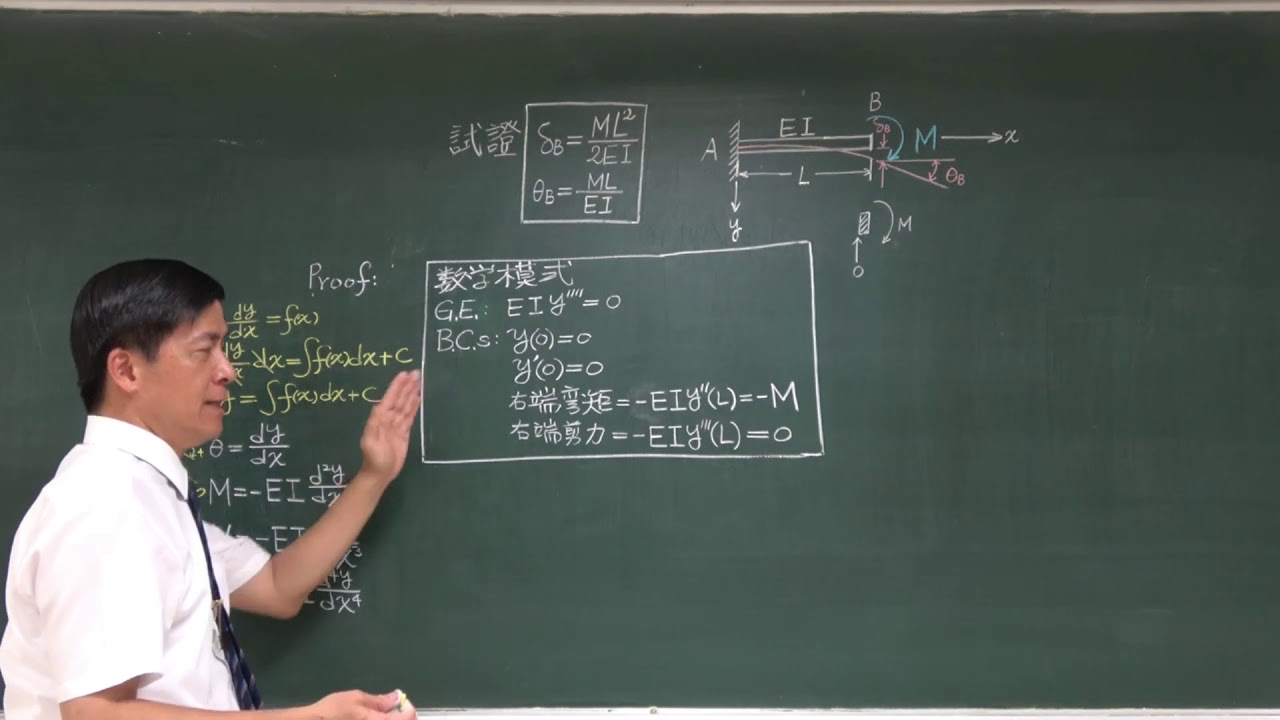 試證
δ_B = ML²/2EI
θ_B = ML/EI
B
EI
δ_B
M
x
A
L
θ_B
y
M
0
Proof:
dy/dx = f(x)
dx = ∫f(x)dx + C
= ∫f(x)dx + C
θ = dy/dx
M = -EI d²y
= -EI
x³
dx⁴
数学模式
G.E.: EIy'''' = 0
B.C.s: y(0) = 0
y'(0) = 0
右端弯矩 = -EIy''(L) = -M
右端剪力 = -EIy'''(L) = 0